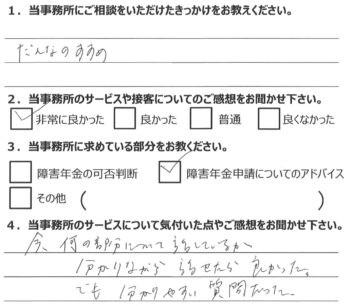 1. 当事務所にご相談をいただけたきっかけをお教えください。
だんなのすすめ
2. 当事務所のサービスや接客についてのご感想をお聞かせ下さい。
非常に良かった 良かった 普通 良くなかった
3. 当事務所に求めている部分をお教ください。
障害年金の可否判断 障害年金申請についてのアドバイス
その他 ( )
4. 当事務所のサービスについて気付いた点やご感想をお聞かせ下さい。
今、何の部分について話しているか
分かりながら 話せたら 良かった。
でも 分かりやすい 質問だった。